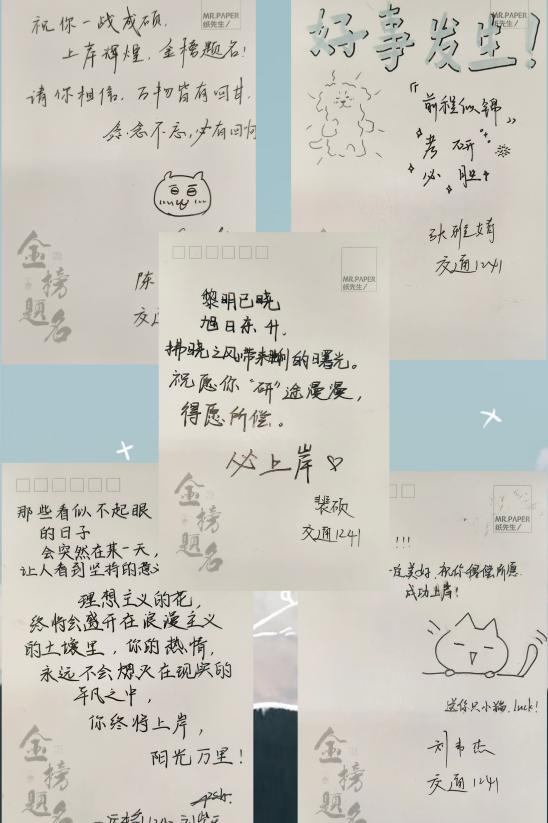 祝你一战成硕,
上岸辉煌,金榜题名!
请你相信,万物皆有回甘,
念念不忘,必有回响
金榜题名
陈
交通
MR.PAPER
纸先生/
好事发生!
MR.PAPER
纸先生/
「前程似锦」
考研
必胜
张雅婧
交通1241
MR.PAPER
纸先生/
黎明已晓
旭日东升,
拂晓之风带来胜利的曙光。
祝愿你“研”途漫漫,
得愿所偿。
必上岸♡
裴硕
交通1241
金榜题名
那些看似不起眼
的日子
会突然在某一天,
让人看到坚持的意义
理想主义的花,
终将会盛开在浪漫主义
的土壤里,你的热情,
永远不会熄灭在现实的
平凡之中,
你终将上岸,
阳光万里!
金榜题名
MR.PAPER
纸先生/
!!!
一定美好,祝你得偿所愿
成功上岸!
送你只小猫,luck!
刘韦杰
交通1241
金榜题名